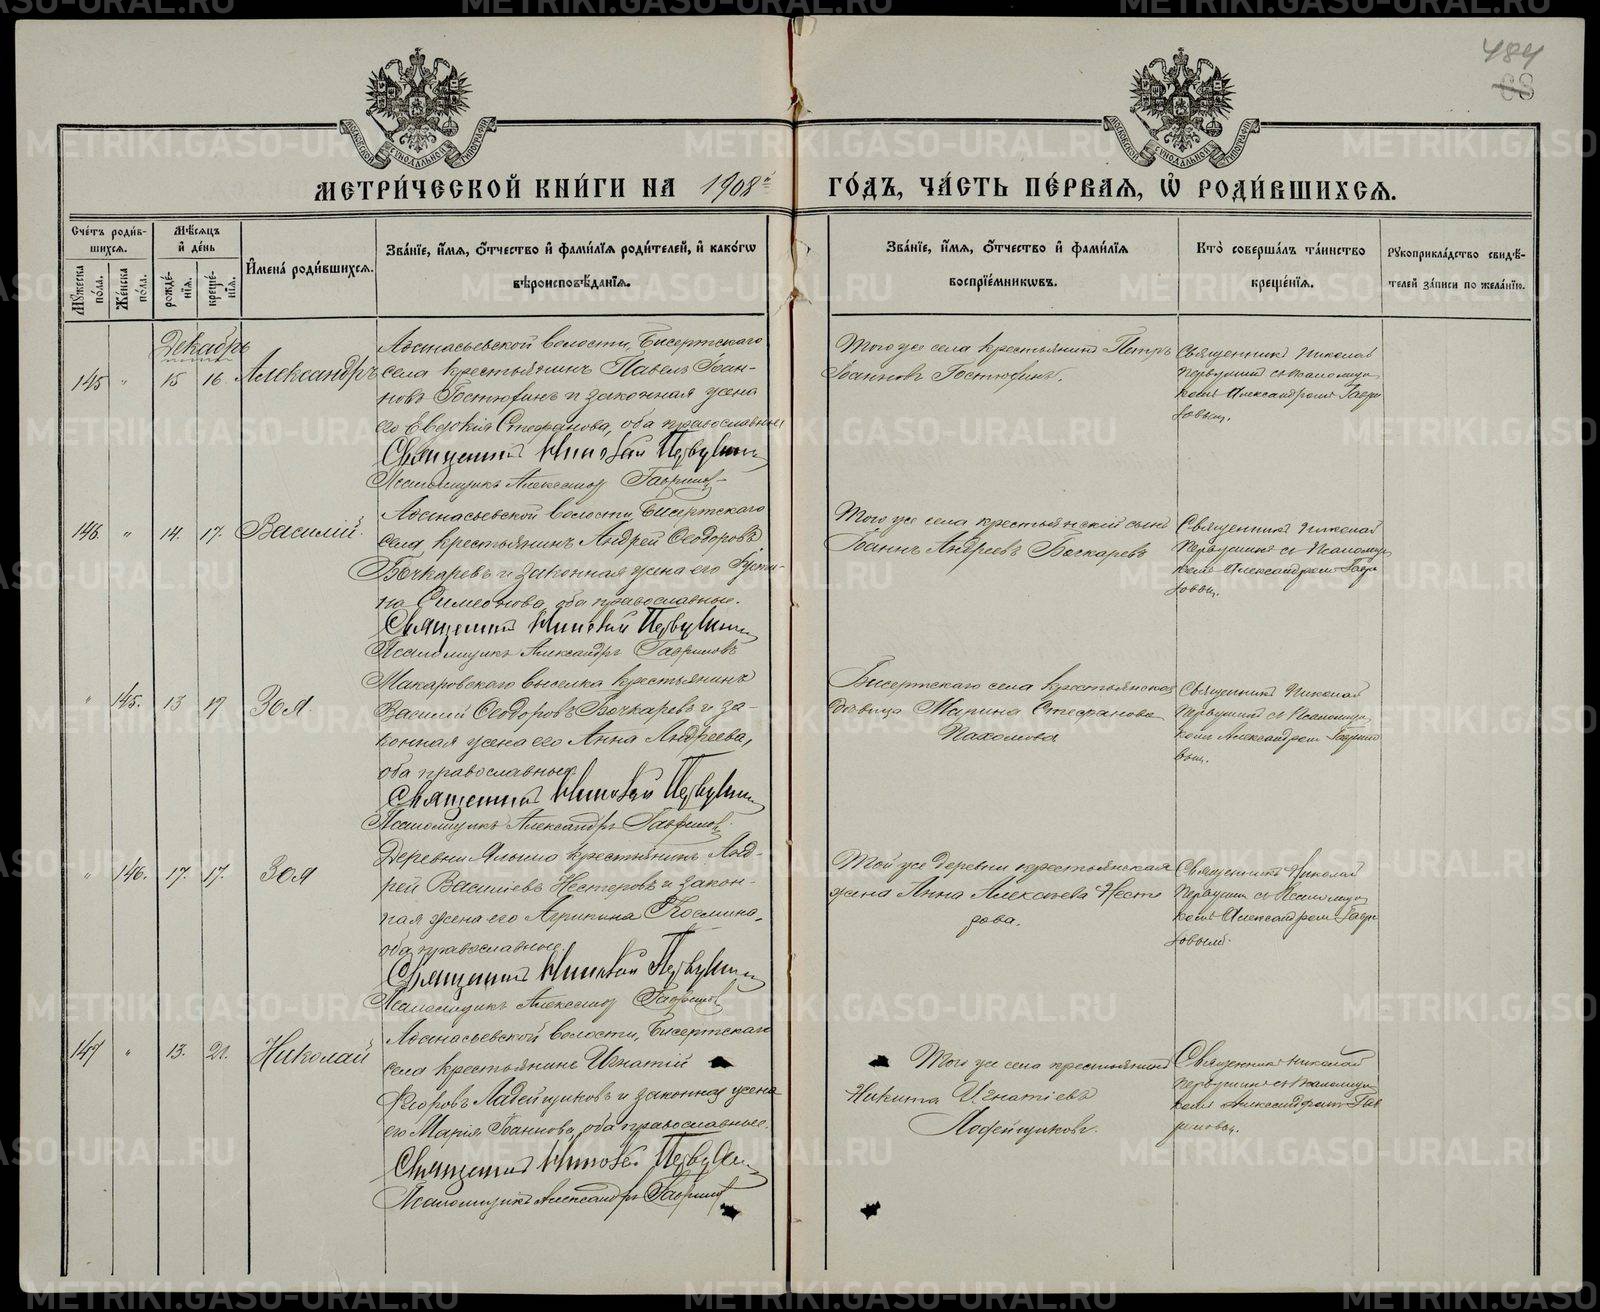 484
68
МОСКОВСКОЙ СѴНОДАЛЬНОЙ ТИПОГРАФІИ
МОСКОВСКОЙ СѴНОДАЛЬНОЙ ТИПОГРАФІИ
МЕТРИ́ЧЕСКОЙ КНИ́ГИ НА 1908й ГО́ДЪ, ЧА́СТЬ ПЕ́РВАЯ, Ѡ҆ РОДИ́ВШИХСЯ.
Сче́тъ роди́в-
шихся.
Мꙋ́жеска по́ла.
Же́нска по́ла.
Мѣ́сяцъ
и҆ де́нь
рожде́-
нїя.
креще́-
нїя.
И҆мена̀ роди́вшихся.
Зва́нїе, и҆́мя, ѻ҆́тчество и҆ фами́лїя роди́телей, и҆ како́гѡ
вѣроисповѣ́данїя.
Зва́нїе, и҆́мя, ѻ҆́тчество и҆ фами́лїя
воспрїе́мникѡвъ.
Кто̀ соверша́лъ та́инство
креще́нїя.
Рꙋкоприкла́дство свидѣ́-
телей за́писи по жела́нїю.
Декабрь
145 " 15 16 Александръ
Аѳанасьевской волости, Бисертскаго
села крестьянинъ Павелъ Іоан-
новъ Гостюхинъ и законная жена
его Евдокія Стефанова, оба православные
Священникъ Николай Первушинъ
Псаломщикъ Александр Гаврилов
Того же села крестьянинъ Петръ
Іоанновъ Гостюхинъ.
Священникъ Николай
Первушинъ съ псаломщи
комъ Александромъ Гаври
ловым.
146. " 14. 17. Василій.
Аѳанасьевской волости, Бисертскаго
села крестьянинъ Андрей Ѳеодоровъ
Бочкаревъ и законная жена его Іусти-
на Симеонова, оба православные.
Священникъ Николай Первушинъ
Псаломщикъ Александръ Гавриловъ
Того же села крестьянскій сынъ
Іоаннъ Андреевъ Бочкаревъ
Священникъ Николай
Первушинъ съ Псаломщи
комъ Александромъ Гаври
ловым.
" 145. 13 17 Зоя.
Макаровскаго выселка крестьянинъ
Василій Ѳеодоровъ Бочкаревъ и за-
конная жена его Анна Андреева,
оба православные
Священникъ Николай Первушинъ
Псаломщикъ Александръ Гаврилов
Бисертскаго села крестьянская
дѣвица Марина Стефанова
Пахомова
Священникъ Николай
Первушинъ съ Псаломщи
комъ Александромъ Гаврило
вым.
" 146. 17. 17. Зоя
Деревни крестьянинъ Анд-
рей Васильевъ Нестеровъ и закон-
ная жена его Агрипина Космина,
оба православные.
Священникъ Николай Первушинъ
Псаломщикъ Александр Гаврилов
Той же деревни крестьянская
жена Анна Алексѣева Несте
рова.
Священникъ Николай
Первушин съ Псаломщи
комъ Александромъ Гаври
ловымъ.
147 " 13. 21. Николай
Аѳанасьевской волости, Бисертскаго
села крестьянинъ Игнатій
Ѳеоровъ Ладейщиковъ и законная жена
его Марія Іоаннова, оба православные.
Священникъ Николай Первушин
Псаломщикъ Александръ Гаврилов
Того же села крестьянинъ
Никита Игнатіевъ
Ладейщиковъ.
Священникъ Николай
Первушинъ съ Псаломщи
комъ Александромъ Гав
риловым.
METRIKI.GASO-URAL.RU